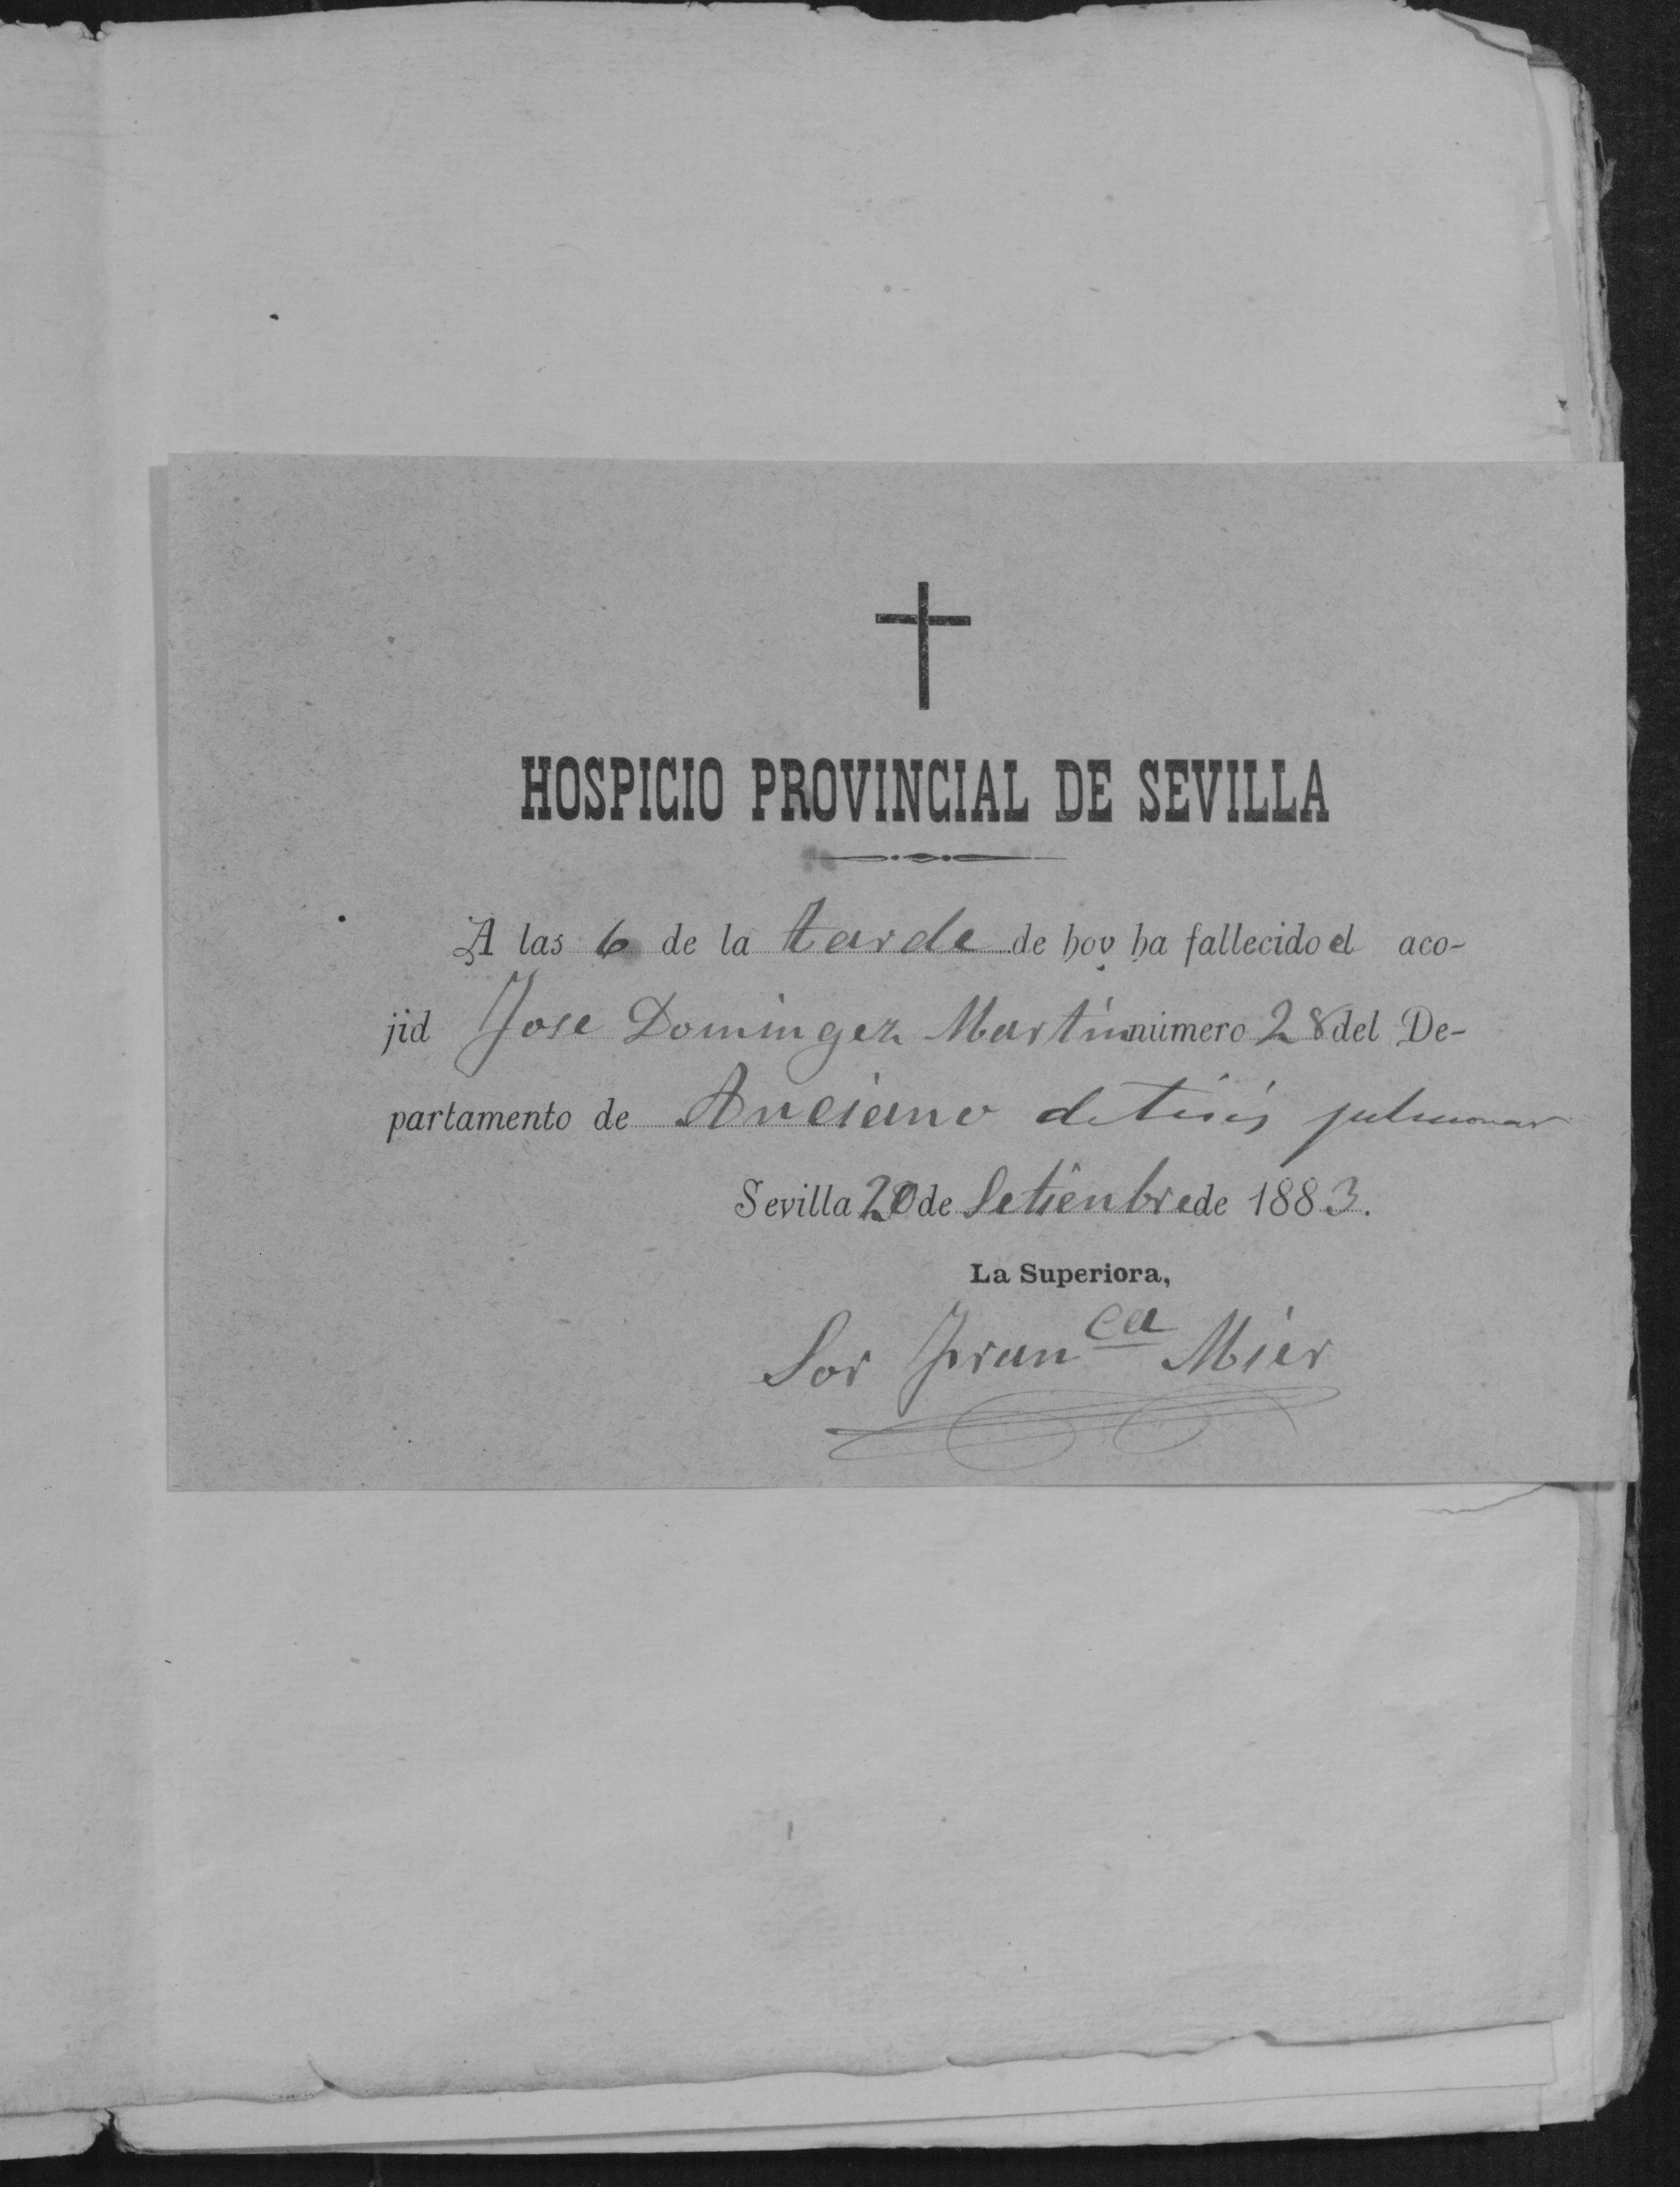 HOSPICIO PROVINCIAL DE SEVILLA
A las 6 de la tarde de hoy ha fallecido el aco-
jid Jose Domingez Martin número 28 del De-
partamento de Anciano de tisis pulmonar
Sevilla 20 de Setienbre de 1883.
La Superiora,
Sor Fran^ca Mier